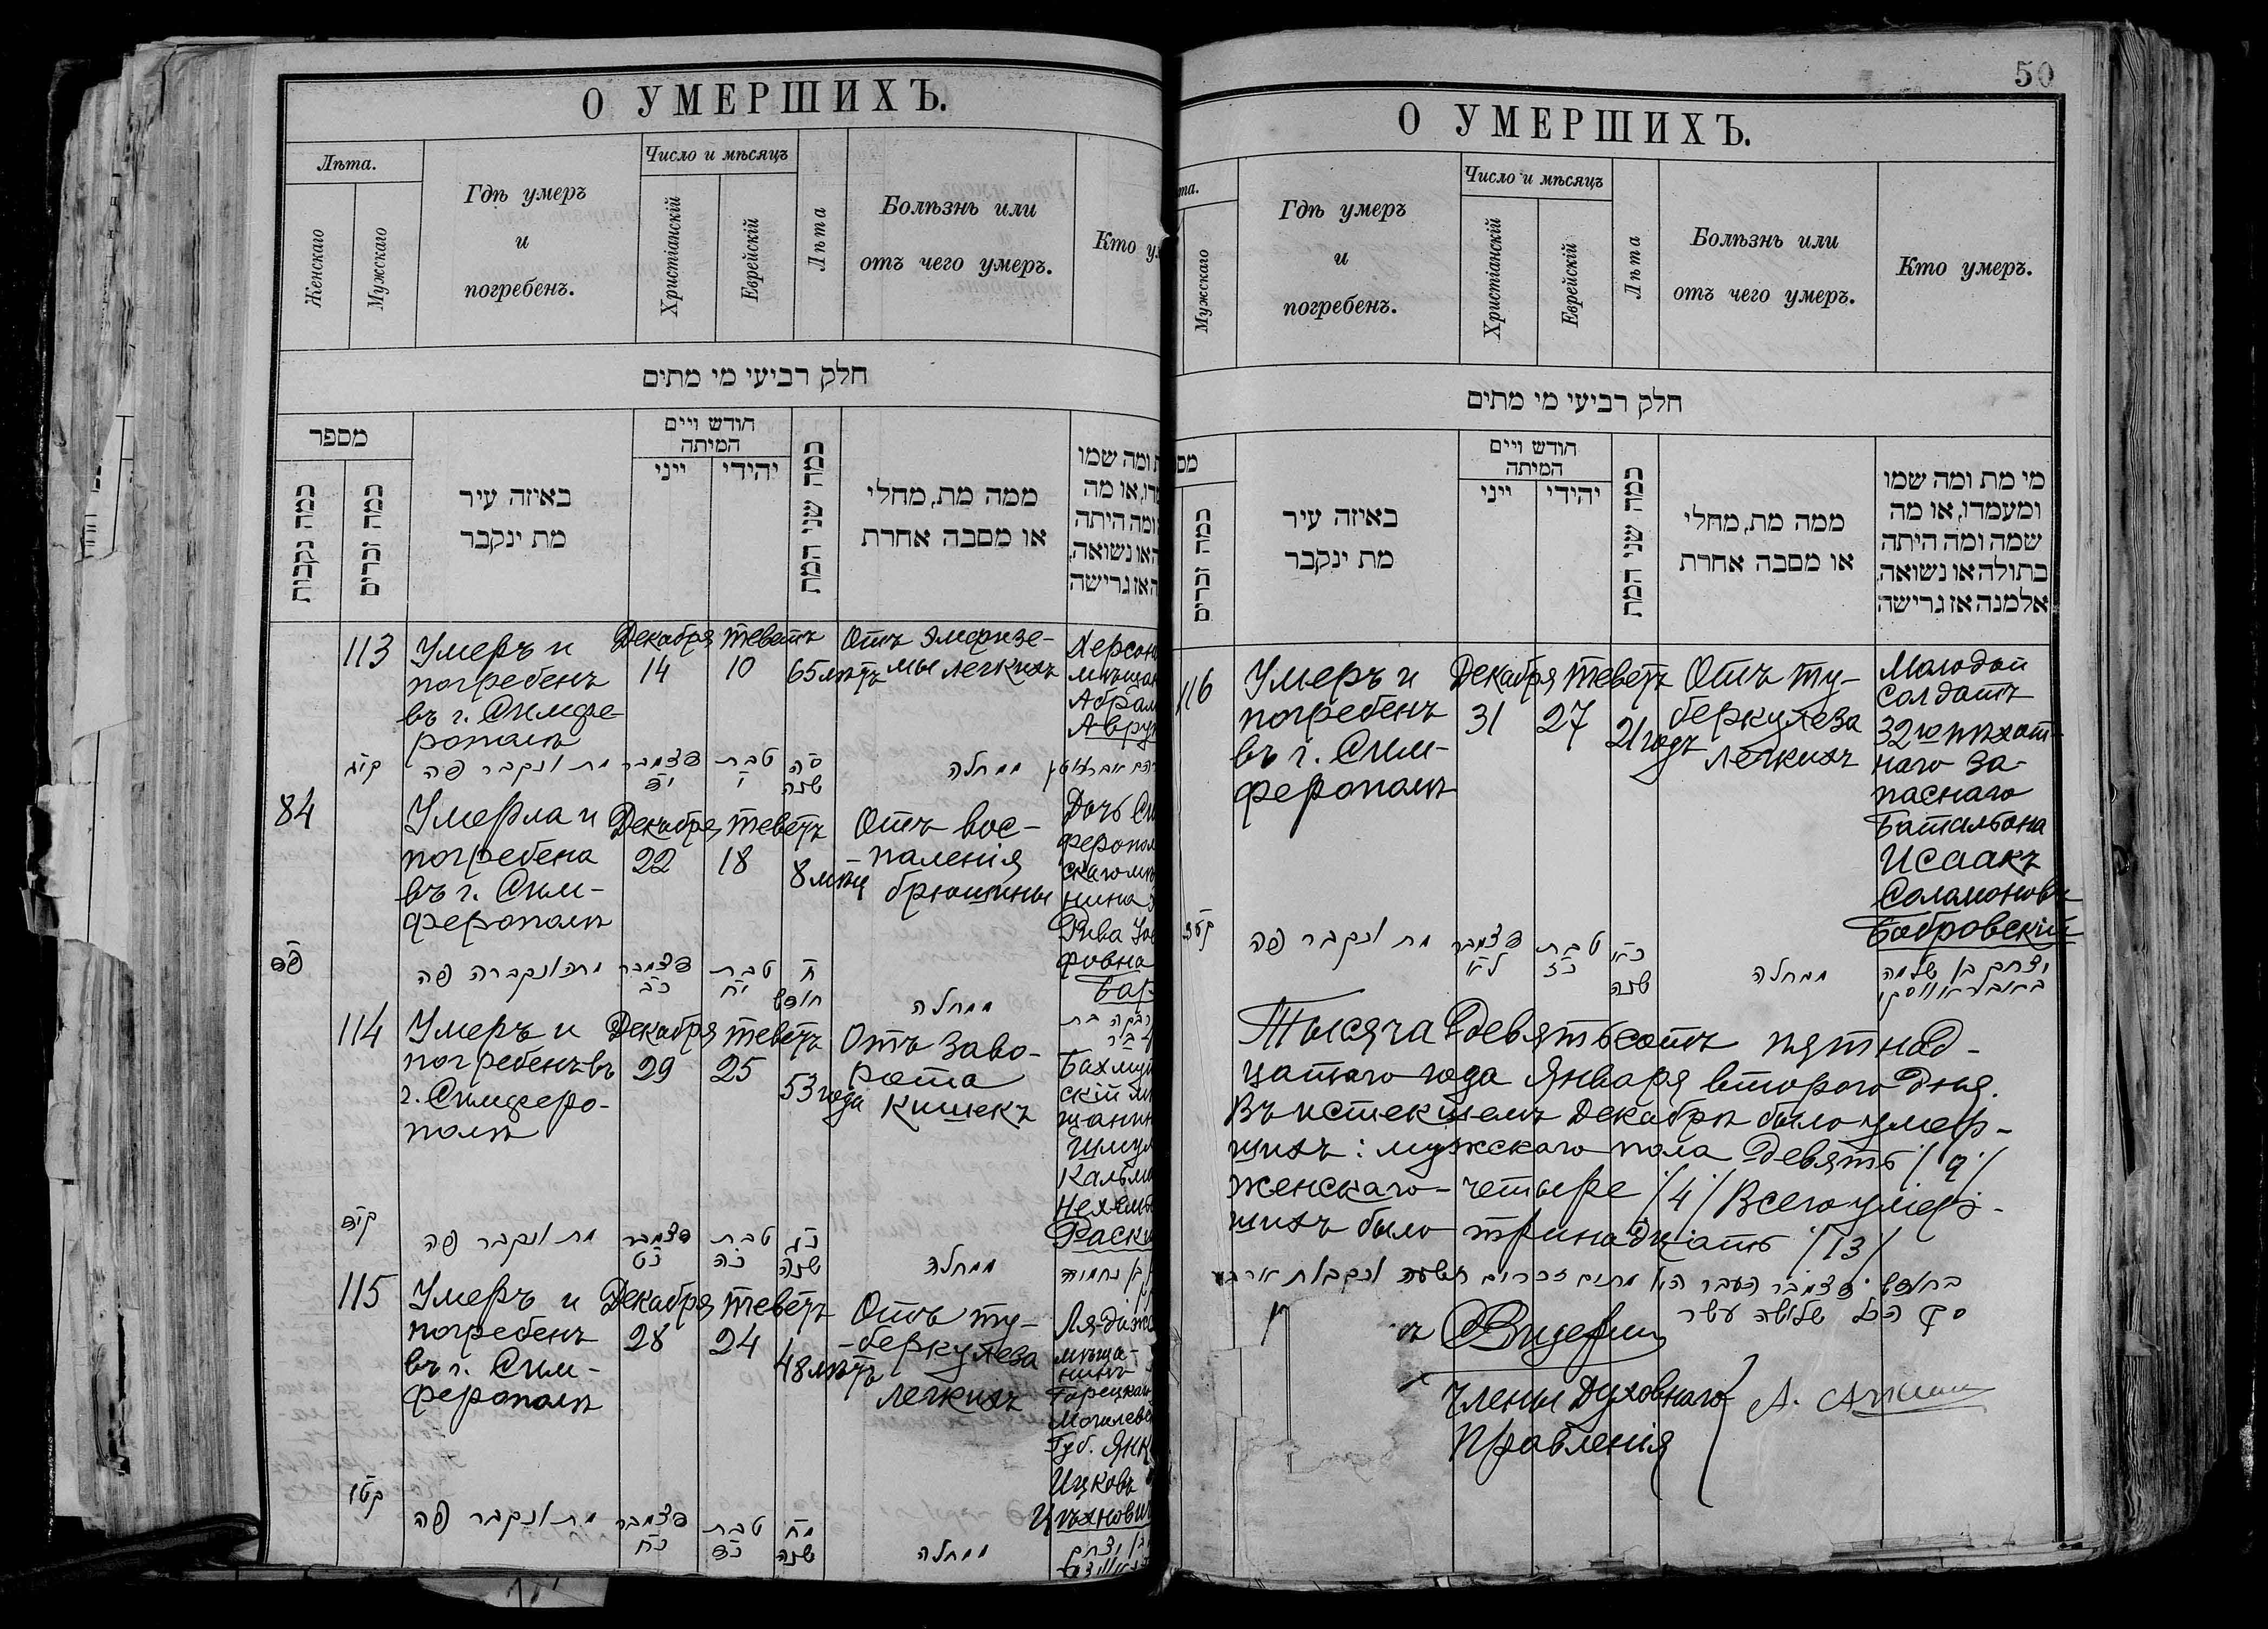 О УМЕРШИХЪ.
Лѣта.
Женскаго
Мужскаго
Гдѣ умеръ
и
погребенъ.
Число и мѣсяцъ
Христіанскій
Еврейскій
Лѣта
Болѣзнь или
отъ чего умеръ.
Кто ум
חלק רביעי מי מתים
מספר
כמה נקבות
כמה זכרים
באיזה עיר
מת ינקבר
חודש ויים
המיתה
ייני
יהידי
כמה שני המת
ממה מת, מחלי
או מסבה אחרת
ומה שמו
או מה
ומה היתה
או נשואה,
אז גרישה
113
Умеръ и
погребенъ
въ г. Симфе-
рополѣ
Декабря
14
Теветъ
10
65 лѣтъ
Отъ эмфизе-
мы легкихъ
Херсон
мѣщан
Абрам
Авру
קיג
מת ונקבר פה
דצמבר
יד
טבת
י
סה
שנה
ממחלה
84
Умерла и
погребена
въ г. Сим-
ферополѣ
Декабря
22
Теветъ
18
8 мѣц
Отъ вос-
паленія
брюшины
Дочь Си
феропол
скаго мѣ
нина
Рива
фовна
Бар
פד
מתה ונקברה פה
דצמבר
כב
טבת
יח
ח
חודש
ממחלה
114
Умеръ и
погребенъ въ
г. Симферо-
полѣ
Декабря
29
Теветъ
25
53 года
Отъ заво-
рота
кишекъ
Бахму
скій мѣ
щанин
Шмул
Кальма
Нехемь
Раски
קיד
מת ונקבר פה
דצמבר
כט
טבת
כה
נג
שנה
ממחלה
115
Умеръ и
погребенъ
въ г. Сим-
ферополѣ
Декабря
28
Теветъ
24
48 лѣтъ
Отъ ту-
беркулеза
легкихъ
мѣща-
нинъ
Горецкаго
Могилев
Губ. Янк
Ицковъ
Цѣхнович
קטו
מת ונקבר פה
דצמבר
כח
טבת
כד
מח
שנה
ממחלה
50
О УМЕРШИХЪ.
та.
Мужскаго
Гдѣ умеръ
и
погребенъ.
Число и мѣсяцъ
Христіанскій
Еврейскій
Лѣта
Болѣзнь или
отъ чего умеръ.
Кто умеръ.
חלק רביעי מי מתים
מס
כמה זכרים
באיזה עיר
מת ינקבר
חודש ויים
המיתה
ייני
יהידי
כמה שני המת
ממה מת, מחלי
או מסבה אחרת
מי מת ומה שמו
ומעמדו, או מה
שמה ומה היתה
בתולה או נשואה,
אלמנה אז גרישה
116
Умеръ и
погребенъ
въ г. Сим-
ферополѣ
Декабря
31
Теветъ
27
21 годъ
Отъ ту-
беркулеза
легкихъ
Молодой
солдатъ
32го пѣхот-
наго за-
паснаго
Батальона
Исаакъ
Соламоновъ
Бобровскій
קטז
מת ונקבר פה
דצמבר
לא
טבת
כז
כא
שנה
ממחלה
יצחק בן שלמה
באבראווסקי
Тысяча девятьсотъ пятнад-
цатаго года Января второго дня.
Въ истекшемъ Декабрѣ было умер-
шихъ: мужского пола девять /9/
женскаго - четыре /4/ Всего умер-
шихъ было тринадцать /13/
בחודש דצמבר העבר היו מתים זכרים תשעה ונקבות ארבע
סך הכל שלושה עשר
Члены Духовнаго
Правленія